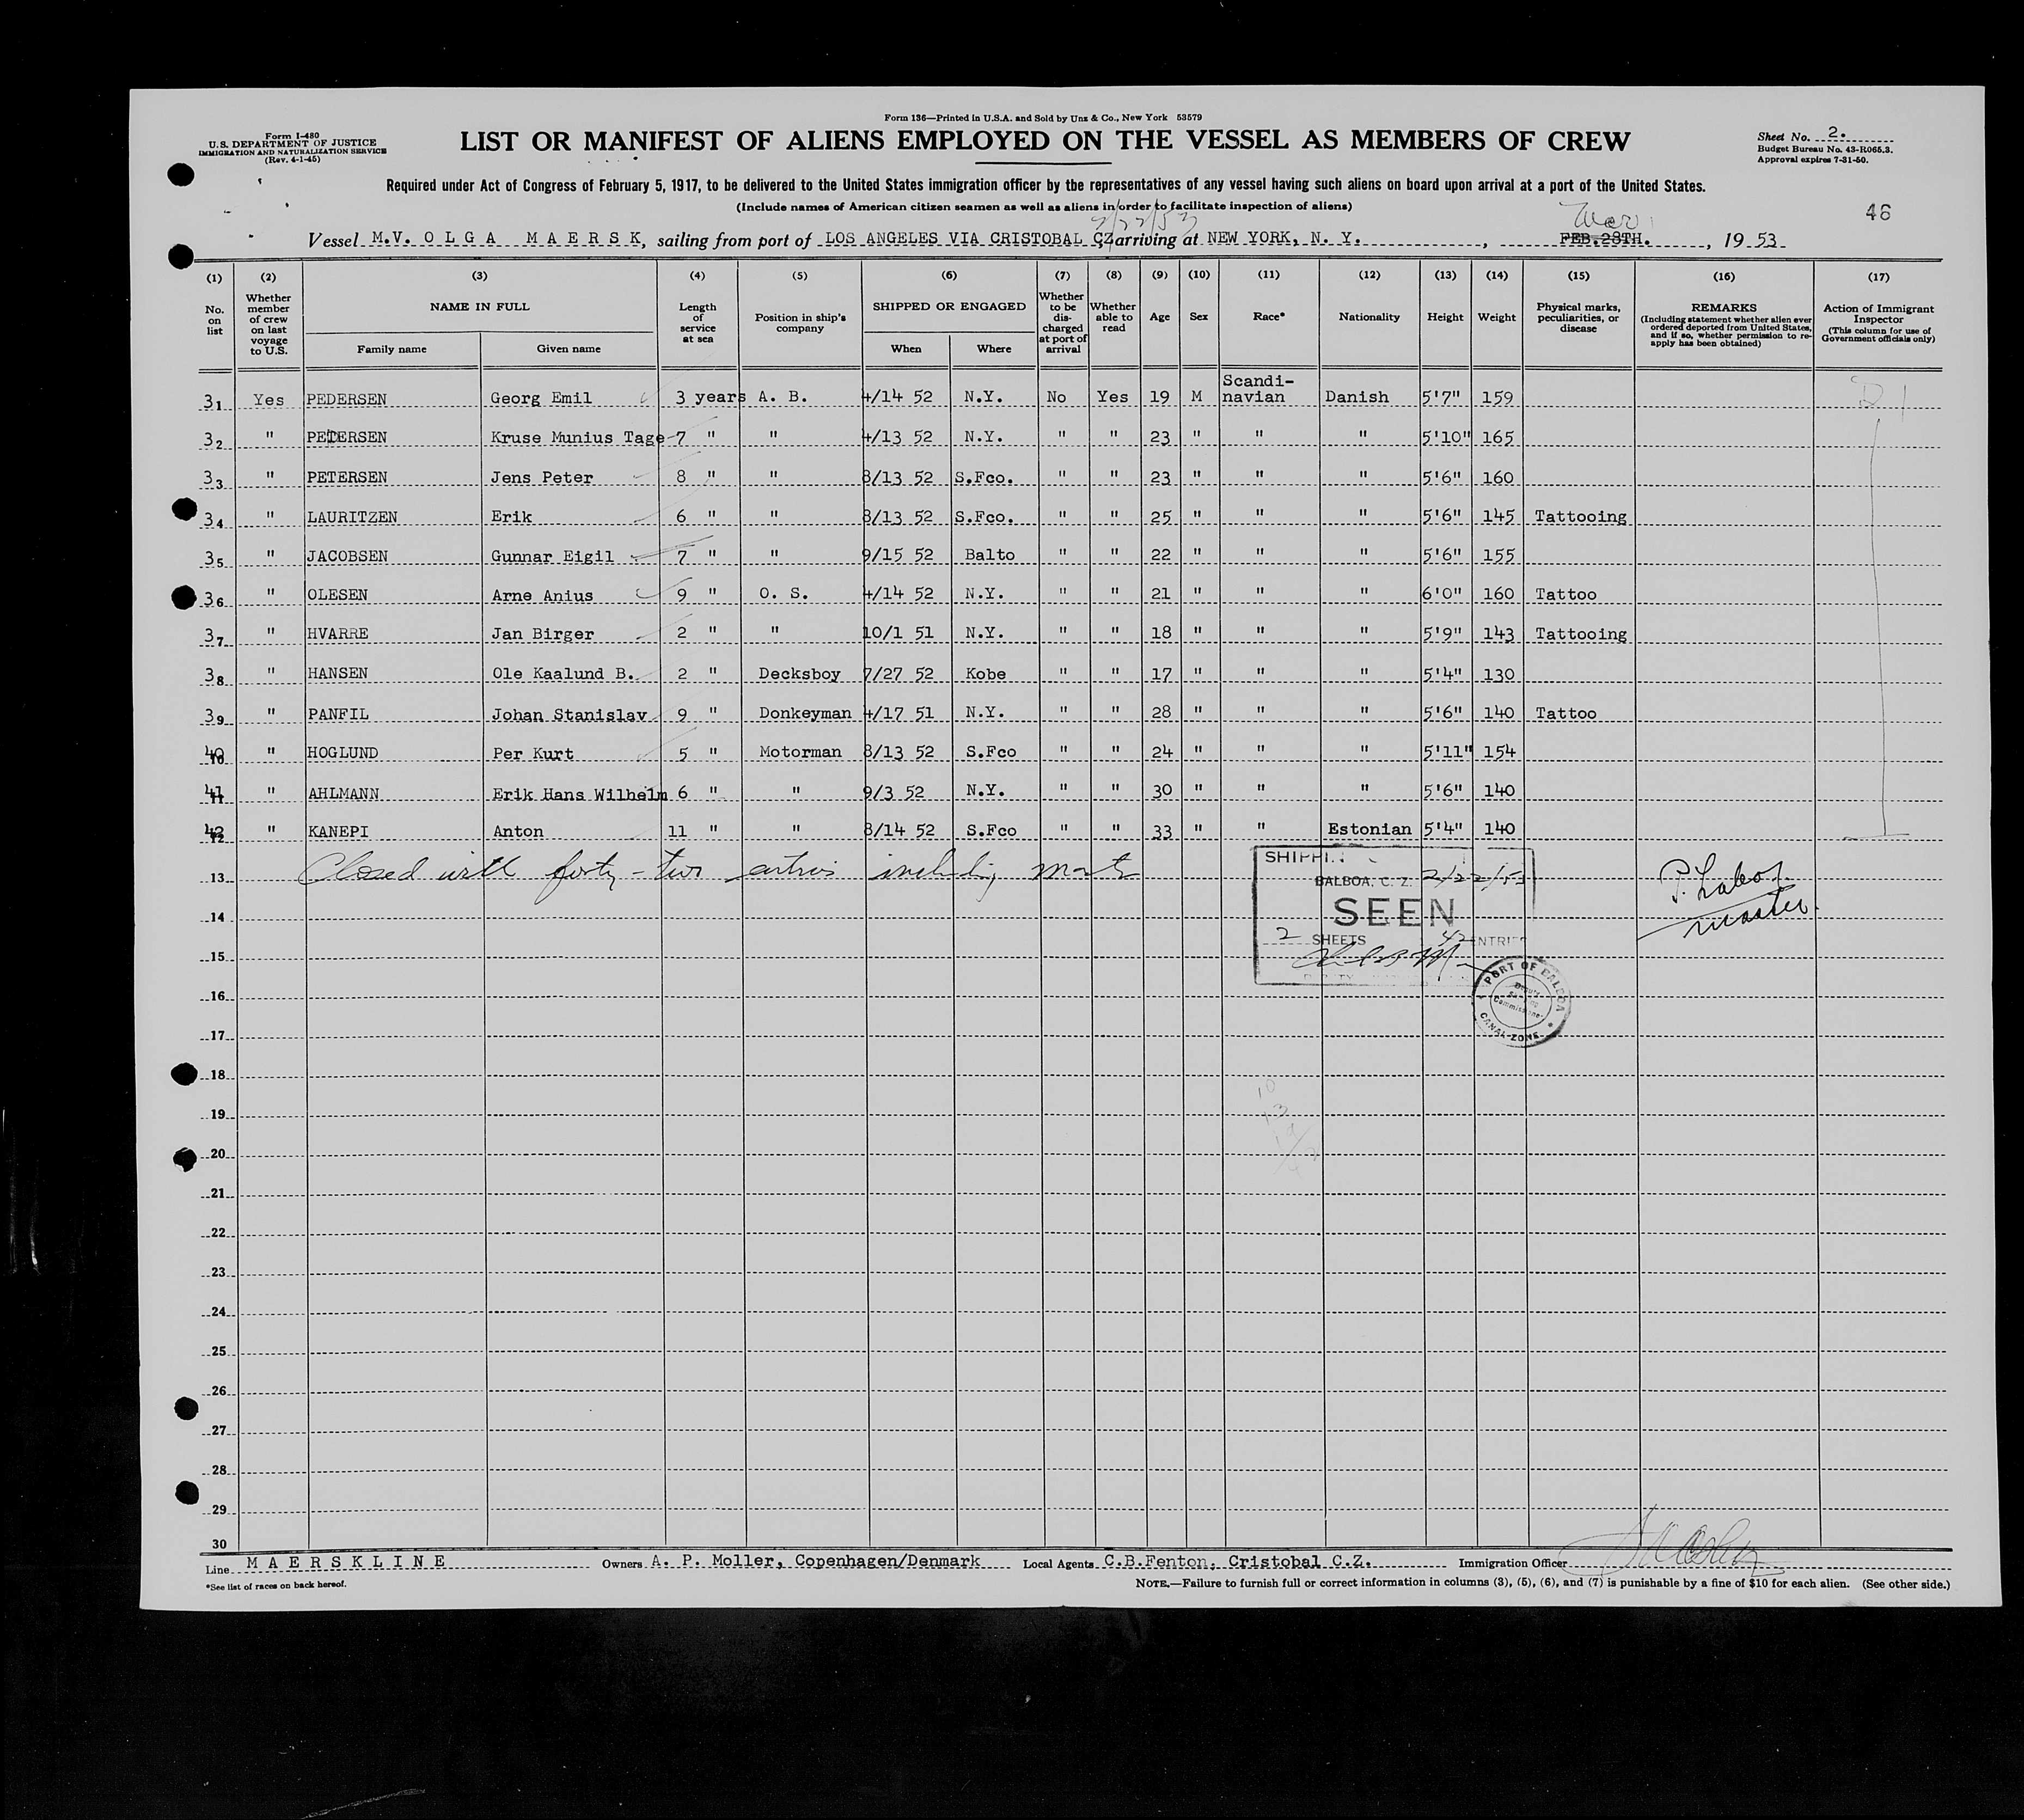 Form 136—Printed in U.S.A. and Sold by Unz & Co., New York 53579
Form I-480
U.S. DEPARTMENT OF JUSTICE
IMMIGRATION AND NATURALIZATION SERVICE
(Rev. 4-1-45)
LIST OR MANIFEST OF ALIENS EMPLOYED ON THE VESSEL AS MEMBERS OF CREW
Sheet No. 2.
Budget Bureau No. 43-R065.3.
Approval expires 7-31-50.
Required under Act of Congress of February 5, 1917, to be delivered to the United States immigration officer by the representatives of any vessel having such aliens on board upon arrival at a port of the United States.
(Include names of American citizen seamen as well as aliens in order to facilitate inspection of aliens)
46
2/22/53
Vessel M.V. OLGA MAERSK, sailing from port of LOS ANGELES VIA CRISTOBAL CZ arriving at NEW YORK, N. Y. , FEB.28TH. , 19 53
(1) (2) (3) (4) (5) (6) (7) (8) (9) (10) (11) (12) (13) (14) (15) (16) (17)
No. on list
Whether member of crew on last voyage to U.S.
NAME IN FULL
Family name
Given name
Length of service at sea
Position in ship's company
SHIPPED OR ENGAGED
When
Where
Whether to be discharged at port of arrival
Whether able to read
Age
Sex
Race*
Nationality
Height
Weight
Physical marks, peculiarities, or disease
REMARKS
(Including statement whether alien ever ordered deported from United States, and if so, whether permission to re-apply has been obtained)
Action of Immigrant Inspector
(This column for use of Government officials only)
31 Yes PEDERSEN Georg Emil 3 years A. B. 4/14 52 N.Y. No Yes 19 M Scandi-navian Danish 5'7" 159
32 " PETERSEN Kruse Munius Tage 7 " " 4/13 52 N.Y. " " 23 " " " 5'10" 165
33 " PETERSEN Jens Peter 8 " " 8/13 52 S.Fco. " " 23 " " " 5'6" 160
34 " LAURITZEN Erik 6 " " 8/13 52 S.Fco. " " 25 " " " 5'6" 145 Tattooing
35 " JACOBSEN Gunnar Eigil 7 " " 9/15 52 Balto " " 22 " " " 5'6" 155
36 " OLESEN Arne Anius 9 " O. S. 4/14 52 N.Y. " " 21 " " " 6'0" 160 Tattoo
37 " HVARRE Jan Birger 2 " " 10/1 51 N.Y. " " 18 " " " 5'9" 143 Tattooing
38 " HANSEN Ole Kaalund B. 2 " Decksboy 7/27 52 Kobe " " 17 " " " 5'4" 130
39 " PANFIL Johan Stanislav 9 " Donkeyman 4/17 51 N.Y. " " 28 " " " 5'6" 140 Tattoo
40 " HOGLUND Per Kurt 5 " Motorman 8/13 52 S.Fco " " 24 " " " 5'11" 154
41 " AHLMANN Erik Hans Wilhelm 6 " " 9/3 52 N.Y. " " 30 " " " 5'6" 140
42 " KANEPI Anton 11 " " 8/14 52 S.Fco " " 33 " " Estonian 5'4" 140
Closed with forty-two entries including master
BALBOA, C. Z. 2/22/53
SEEN
2 SHEETS 42 ENTRIES
master
PORT OF BALBOA
Deputy Shipping Commissioner
CANAL ZONE
13
14
15
16
17
18
19
20
21
22
23
24
25
26
27
28
29
30
Line MAERSKLINE Owners A. P. Moller, Copenhagen/Denmark Local Agents C.B.Fenton, Cristobal C.Z. Immigration Officer
*See list of races on back hereof.
NOTE.—Failure to furnish full or correct information in columns (3), (5), (6), and (7) is punishable by a fine of $10 for each alien. (See other side.)